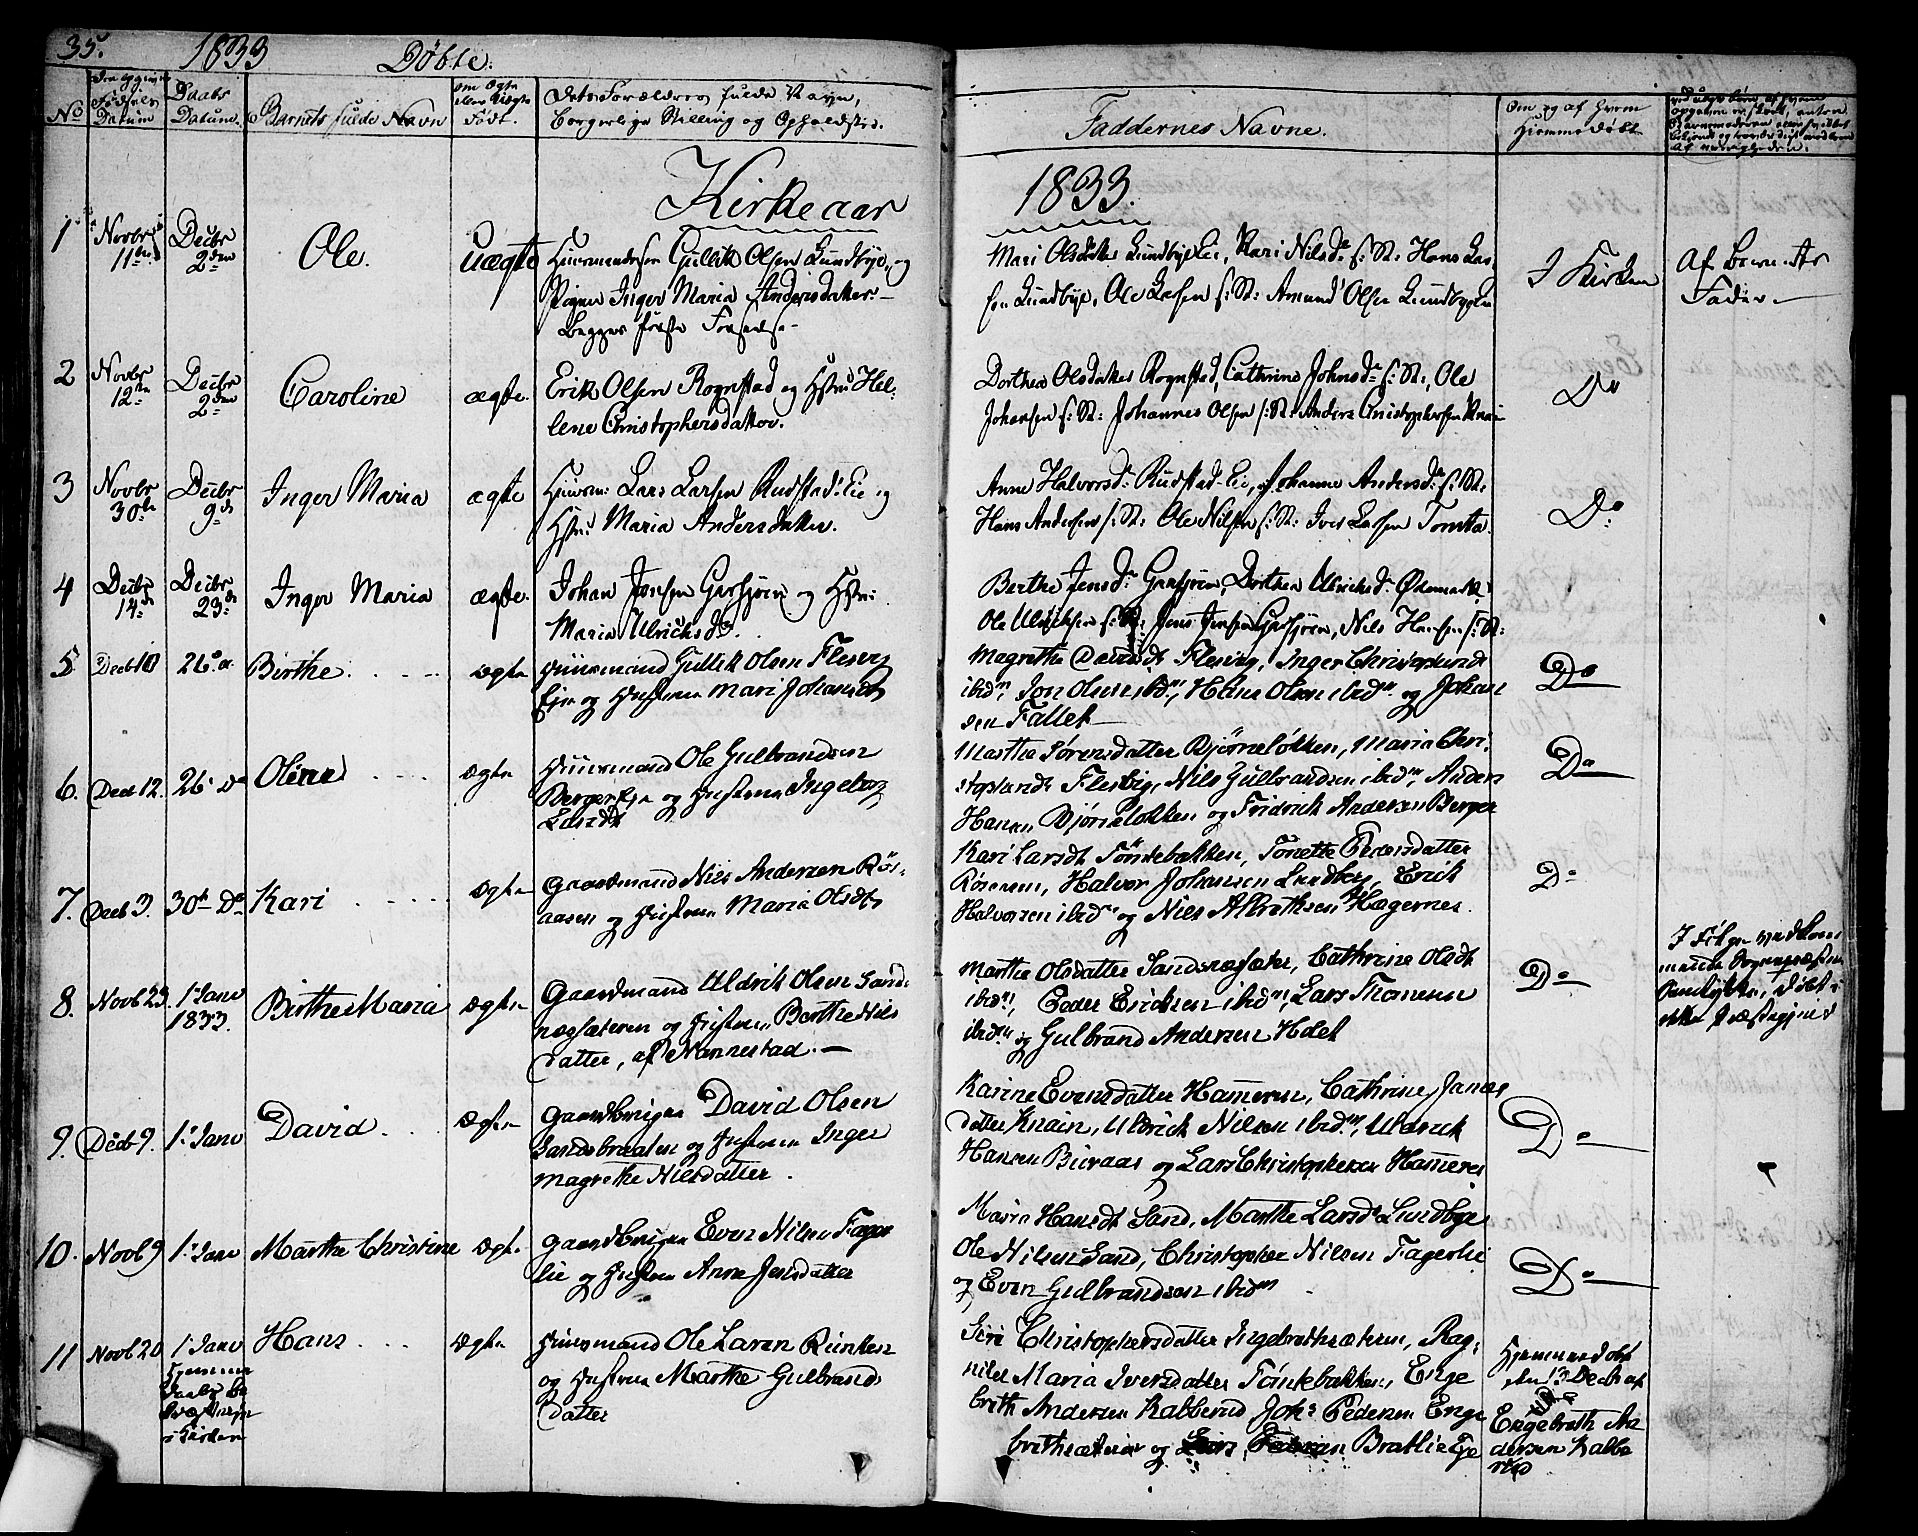 35. 1833 Döbte.
No
Fødsels Datum
Daabs Datum.
Barnets fulde Navn
om Ægte eller Uægte Født.
Dets Forældres fulde Navn, borgerlige Stilling og Opholdsted.
Faddernes Navne.
Om og af hvem Hjemmedöbt
Kirkeaar 1833.
1 Novbr 11te Decbr 2den Ole. Uægte
Huusmandssøn Gullik Olsen Lundbye, og
Pigen Inger Maria Andersdatter
Begges første Forseelse
Mari Olsdatter Lundbye Eie, Kari Nilsd. f: St: Hans Lar-
sen Lundbye, Ole Larsen f: St: Amund Olsen Lundbyeeie
I Kirken
Af Barnets
Fader
2 Novbr 12te Decbr 2den Caroline ægte.
Erik Olsen Rognstad og Hstru Hel-
lene Christophersdatter.
Dorthea Olsdatter Rognstad, Cathrine Johnsd: f: St:, Ole
Johansen f: St: Johannes Olsen f: St: Anders Christophersen Knai
Do
3 Novbr 30te Decbr 9de Inger Maria ægte
Huusm: Lars Larsen Rudstad-Eie og
Hstru Maria Andersdatter.
Anne Halvorsd: Rudstad-Eie, Johanne Andersd: f: St:
Hans Andersen f: St: Ole Nilsen f: St: Iver Larsen Tomta.
Do
4 Decbr 14de Decbr 23de Inger Maria ægte.
Johan Jensen Garsjøen og Hstru:
Maria Ulrichsd.
Berthe Jensd: Garsjøen, Dorthea Ulrichsd: Ødemark,
Ole Ulrichsen f: St: Jens Jensen Garsjøen, Nils Hansen f: St:
5 Decbr 10 26 d. Birthe ægte
Huusmand Gullik Olsen Flesvig
Eje og Hustrue Mari Johansdt
Magrethe Davidsdt Flesvig, Inger Christophersdt
ibdm, Jon Olsen ibdm, Hans Olsen ibdm og Johan
sen Fallet
Do
6. Decb 12. 26 Do Olene ægte
Huusmand Ole Gulbrandsen
Berger Eje og Hustrue Ingeborg
Larsdt
Marthe Sørensdatter Bjørneløkken, Maria Chri-
stophersdt Flesvig, Nils Gulbrandsen ibdm, Anders
Hansen Bjørneløkken og Fridrick Andersen Berger
Do
7. Decb 3. 30te Do Kari ægte
Gaardmand Nils Andersen Røs-
aasen og Hustrue Maria Olsdt
Kari Larsdt Tömtebakken, Tonette Pedersdatter
Røsaasen, Halvor Johansen Lundbye, Erick
Halvorsen ibdm og Nils Albrethsen Hægernes.
Do
8. Novb 23. 1. Janv 1833. Birthe Maria ægte
Gaardmand Uldrik Olsen Sand-
næssæteren og Hustrue Berthe Nils
datter, af Nannestad.
Marthe Olsdatter Sandnæssæter, Cathrine Olsdt
ibdm, Peder Ericksen ibdm, Lars Thomesen
ibdm og Gulbrand Andersen Holet
Do
9. Decb 9. 1. Janv David ægte
Gaardbruger David Olsen
Sandsbraaten og Hustrue Inger
Magrethe Nilsdatter.
Karine Evensdatter Hammeren, Cathrine Janes
datter Knain, Uldrick Nilsen ibdm, Uldrick
Hansen Buraas og Lars Christophersen Hammeren
Do
10. Novb 9 1. Janv Marthe Christine ægte
Gaardbruger Even Nilsen Fager
lie og Hustrue Anne Jensdatter
Maria Hansdt Sand, Marthe Larsdt Lundbye
Ole Nilsen Sand, Christopher Nilsen Fagerlie
og Even Gulbrandsen ibdm
Do
11 Novb 20 1. Janv Hans ægte
Huusmand Ole Larsen Runken
og Hustrue Marthe Gulbrands
datter
Siri Christophersdatter Ingebrethsæteren, Rag-
nild Maria Iversdatter Tömtebakken, Enge
breth Andersen Kalberud Johs Pedersen Enge
brethsæteren og Bratlie Eje
Hjemmedöbt
den 13 Decb af
Engebreth An
dersen Kalbe
rud